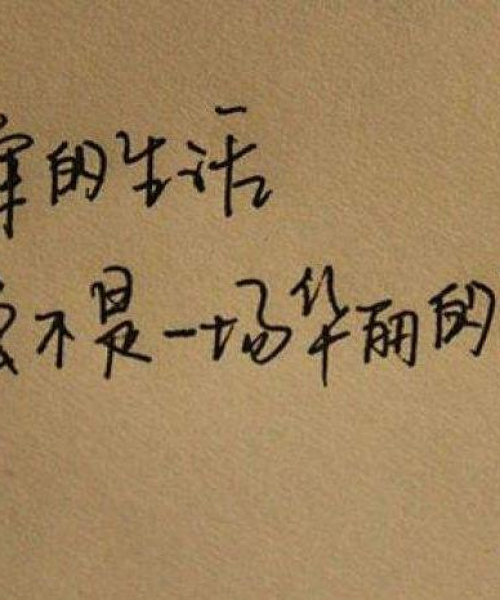 的生活
不是一场华丽的